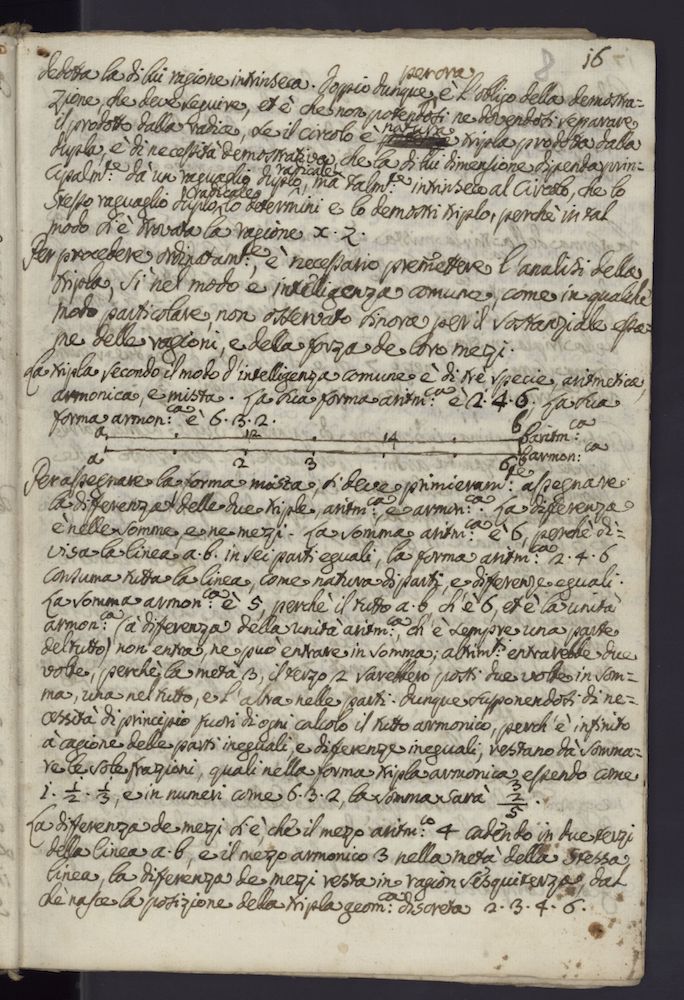 16
8
per ora
dedotta la di lui ragione intrinseca. Doppio dunque è l'obligo della demostra=
zione, che deve seguire, et è che non potendosi, ne dovendosi separare
il prodotto dalla radice, se il circolo è natura tripla prodotta dalla
dupla, è di necessità demostrativa, che la di lui dimensione dipenda prin-
cipalm:te da un raguaglio duplo, radicale mà talm:te intrinseco al Circolo, che lo
stesso raguaglio duplo radicale lo determini e lo demostri triplo, perche in tal
modo si è trovata la ragione x. 2.
Per procedere ordinatam:te, è necessario premettere l'analisi della
tripla, sì nel modo e intelligenza comune, come in qualche
modo particolare, non osservato sinora per il sostanziale
delle ragioni, e della forza de loro mezi.
La tripla secondo il modo d'intelligenza comune è di trè specie, aritmetica,
armonica, e mista. La sua forma aritm:ca è 2. 4. 6. La sua
forma armon:ca è 6. 3. 2.
a 2 4 6 b aritm:ca
a 2 3 6 b armon:ca
Per assegnare la forma mista, si deve primieram:te assegnare
la diferenza delle due triple, aritm:ca, e armon:ca. La diferenza
è nelle somme, e ne mezi. La somma aritm:ca è 6, perchè di=
visa la linea a. b. in sei parti eguali, la forma aritm:ca 2. 4. 6
consuma tutta la linea, come natura di parti, e diferenze eguali.
La somma armon:ca è 5, perchè il tutto a. b, ch'è 6, et è la unità
armon:ca (à diferenza della unità aritm:ca, ch'è sempre una parte
del tutto) non entra, ne può entrare in somma; altrim:ti entrarebbe due
volte, perchè la metà 3, il terzo 2 sarebbero posti due volte in som=
ma, una nel tutto, e l'altra nelle parti. Dunque supponendosi di ne=
cessità di principio fuori di ogni calcolo il tutto armonico, perch'è infinito
à cagione delle parti ineguali, e diferenze ineguali, restano da somma=
re le sole frazioni, quali nella forma tripla armonica essendo come
1. 1/2. 1/3, e in numeri come 6. 3. 2, la somma sarà 3 2 5.
La diferenza de mezi si è, che il mezo aritm:co 4 cadendo in due terzi
della linea a. b, e il mezo armonico 3 nella metà della stessa
linea, la diferenza de mezi resta in ragion sesquiterza, dal
che nasce la posizione della tripla geom:ca discreta 2. 3. 4. 6.